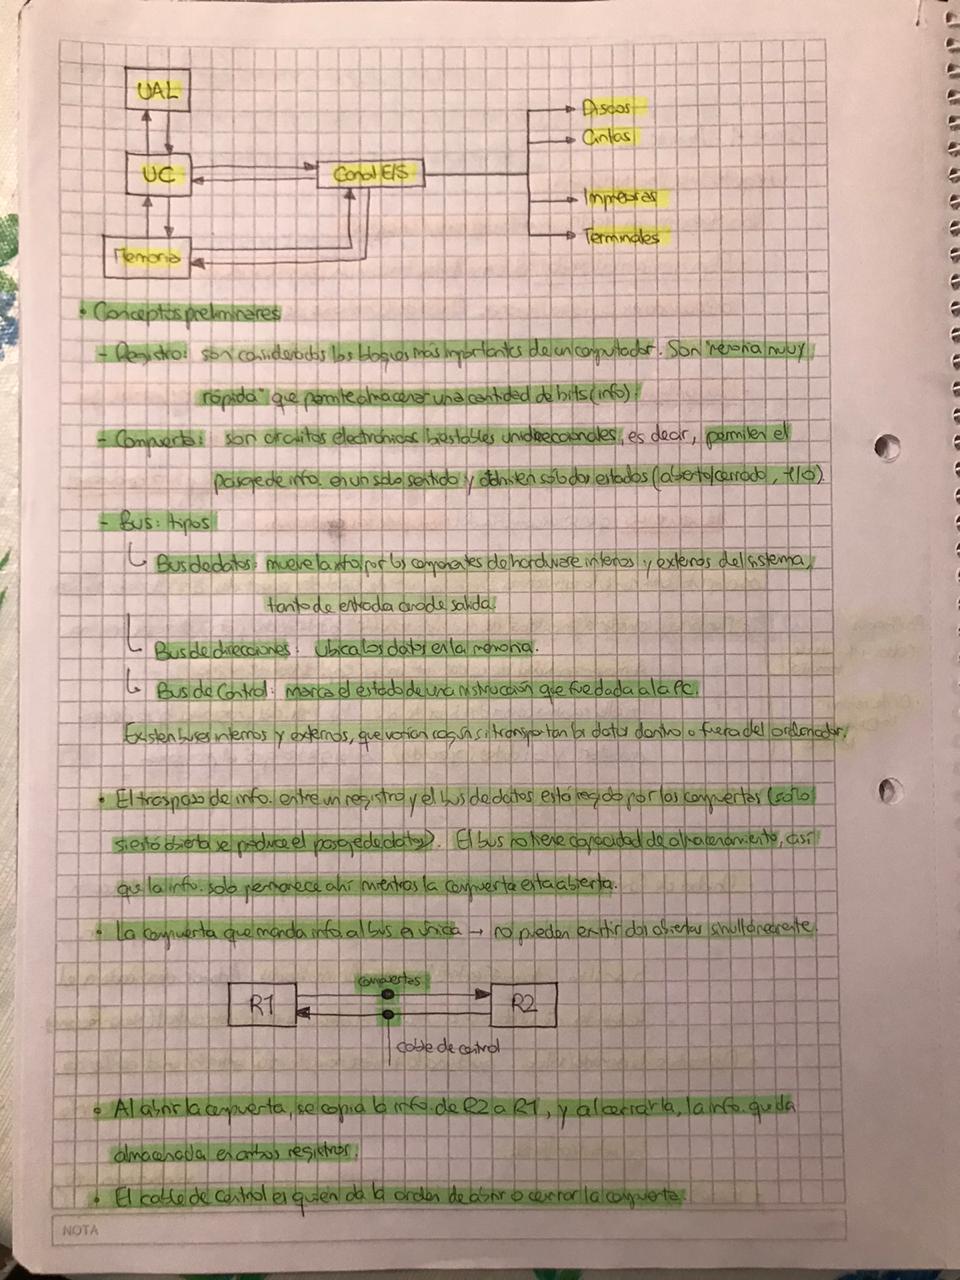 UAL
Discos
Cintas
UC
Canal E/S
Impresoras
Terminales
Memoria
• Conceptos preliminares
- Registro: son considerados los bloques más importantes de un computador. Son "memoria muy
rápida" que permite almacenar una cantidad de bits (info).
- Compuerta: son circuitos electrónicos biestables unidireccionales, es decir, permiten el
pasaje de info. en un solo sentido y admiten sólo dos estados (abierto/cerrado, 1/0).
- Bus: tipos
Bus de datos: mueve la info. por los componentes de hardware internos y externos del sistema,
tanto de entrada como de salida.
Bus de direcciones: ubica los datos en la memoria.
Bus de control: marca el estado de una instrucción que fue dada a la PC.
Existen buses internos y externos, que varían según si transportan la datos dentro o fuera del ordenador.
• El traspaso de info. entre un registro y el bus de datos está regido por las compuertas (sólo
si está abierta se produce el pasaje de datos). El bus no tiene capacidad de almacenamiento, así
que la info. solo permanece ahí mientras la compuerta esta abierta.
• La compuerta que manda info. al bus es única → no pueden existir dos abiertas simultáneamente.
compuertas
R1
R2
cable de control
• Al abrir la compuerta, se copia la info. de R2 a R1, y al cerrarla, la info. queda
almacenada en ambos registros.
• El cable de control es quien da la orden de abrir o cerrar la compuerta.
NOTA